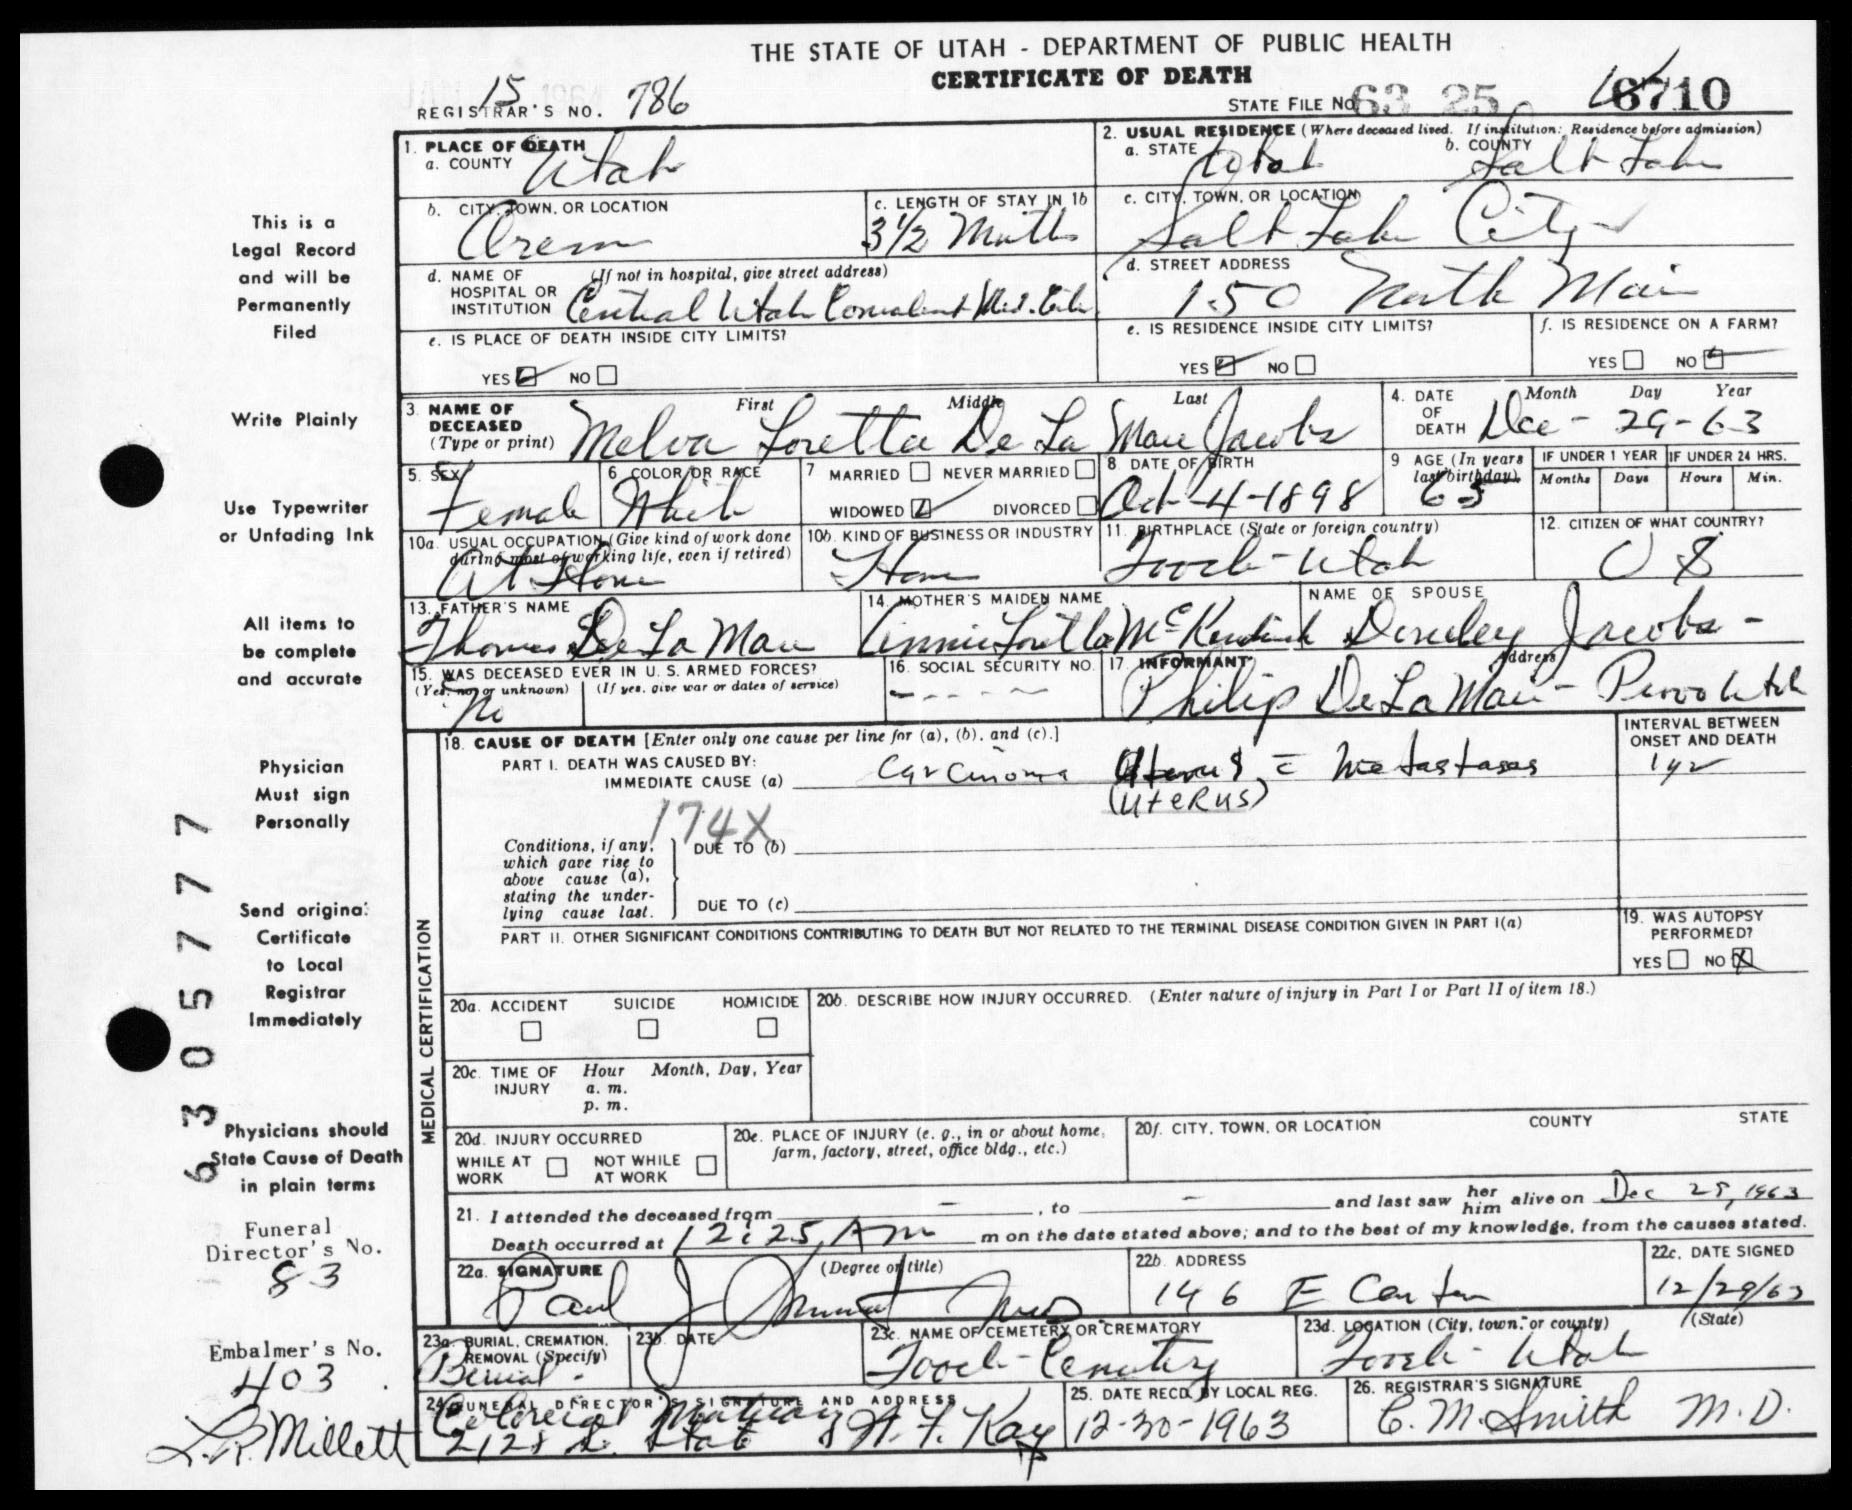 THE STATE OF UTAH - DEPARTMENT OF PUBLIC HEALTH
CERTIFICATE OF DEATH
REGISTRAR'S NO. 15. 786
STATE FILE NO. 63 25 6710
This is a
Legal Record
and will be
Permanently
Filed
Write Plainly
Use Typewriter
or Unfading Ink
All items to
be complete
and accurate
Physician
Must sign
Personally
Send original
Certificate
to Local
Registrar
Immediately
Physicians should
State Cause of Death
in plain terms
Funeral
Director's No.
83
Embalmer's No.
403
L.R. Millett
6305777
1. PLACE OF DEATH
a. COUNTY Utah
2. USUAL RESIDENCE (Where deceased lived. If institution: Residence before admission)
a. STATE Utah b. COUNTY Salt Lake
b. CITY, TOWN, OR LOCATION Orem
c. LENGTH OF STAY IN 1b 3 1/2 Month
c. CITY, TOWN, OR LOCATION Salt Lake City
d. NAME OF HOSPITAL OR INSTITUTION (If not in hospital, give street address) Central Utah
d. STREET ADDRESS 150 North Main
e. IS PLACE OF DEATH INSIDE CITY LIMITS?
YES NO
e. IS RESIDENCE INSIDE CITY LIMITS?
YES NO
f. IS RESIDENCE ON A FARM?
YES NO
3. NAME OF DECEASED (Type or print) First Middle Last
Melva Loretta De La Mare Jacobs
4. DATE OF DEATH Month Day Year
Dec - 29-63
5. SEX Female
6 COLOR OR RACE White
7 MARRIED NEVER MARRIED
WIDOWED DIVORCED
8 DATE OF BIRTH Oct-4-1898
9 AGE (In years last birthday) 65
IF UNDER 1 YEAR Months Days
IF UNDER 24 HRS. Hours Min.
10a. USUAL OCCUPATION (Give kind of work done during most of working life, even if retired) At Home
10b. KIND OF BUSINESS OR INDUSTRY Home
11. BIRTHPLACE (State or foreign country) Tooele-Utah
12. CITIZEN OF WHAT COUNTRY? U S
13. FATHER'S NAME Thomas De La Mare
14. MOTHER'S MAIDEN NAME Annie Loretta McKendrick
NAME OF SPOUSE Jacobs -
15. WAS DECEASED EVER IN U. S. ARMED FORCES?
(Yes, no, or unknown) (If yes, give war or dates of service)
No
16. SOCIAL SECURITY NO.
- - - -
17. INFORMANT Address
Philip De La Mare - Provo Utah
MEDICAL CERTIFICATION
18. CAUSE OF DEATH [Enter only one cause per line for (a), (b), and (c).]
INTERVAL BETWEEN ONSET AND DEATH
PART I. DEATH WAS CAUSED BY:
IMMEDIATE CAUSE (a) Carcinoma Uterus, c̄ metastases 1 yr
(UTERUS)
174X
Conditions, if any, which gave rise to above cause (a), stating the underlying cause last.
DUE TO (b)
DUE TO (c)
PART II. OTHER SIGNIFICANT CONDITIONS CONTRIBUTING TO DEATH BUT NOT RELATED TO THE TERMINAL DISEASE CONDITION GIVEN IN PART I(a)
19. WAS AUTOPSY PERFORMED?
YES NO X
20a. ACCIDENT SUICIDE HOMICIDE
20b. DESCRIBE HOW INJURY OCCURRED. (Enter nature of injury in Part I or Part II of item 18.)
20c. TIME OF INJURY Hour Month, Day, Year
a. m.
p. m.
20d. INJURY OCCURRED
WHILE AT WORK NOT WHILE AT WORK
20e. PLACE OF INJURY (e. g., in or about home, farm, factory, street, office bldg., etc.)
20f. CITY, TOWN, OR LOCATION COUNTY STATE
21. I attended the deceased from - , to - and last saw her him alive on Dec 28, 1963
Death occurred at 12:25 AM m on the date stated above; and to the best of my knowledge, from the causes stated.
22a. SIGNATURE (Degree or title)
Paul J
22b. ADDRESS 146 E Center
22c. DATE SIGNED 12/29/63
23a. BURIAL, CREMATION, REMOVAL (Specify) Burial -
23b. DATE
23c. NAME OF CEMETERY OR CREMATORY Tooele-Cemetery
23d. LOCATION (City, town, or county) (State) Tooele - Utah
24. FUNERAL DIRECTOR'S SIGNATURE AND ADDRESS
Colonial Mortuary
2128 S. State W. F. Kay
25. DATE RECD. BY LOCAL REG. 12-30-1963
26. REGISTRAR'S SIGNATURE C. M. Smith M.D.